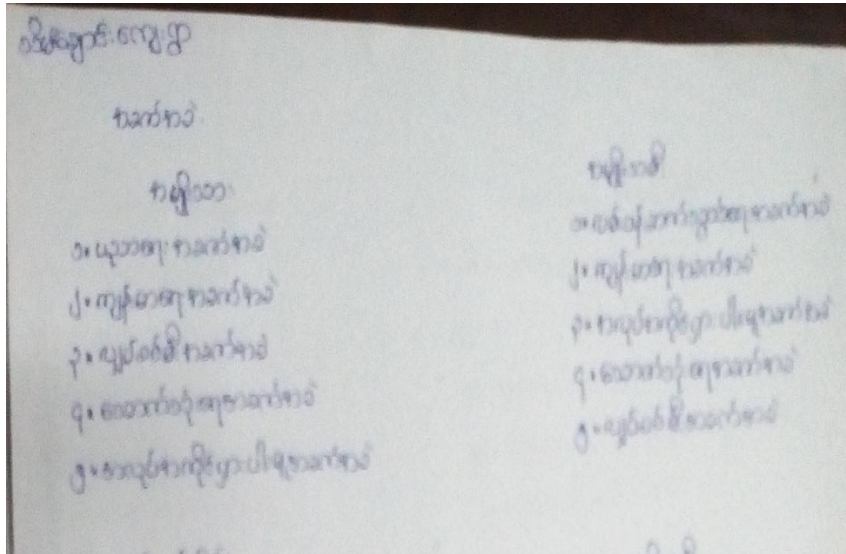 ကျေးရွာ
အခက်အခဲ
အမျိုးသား
၁။ ပညာရေးအခက်အခဲ
၂။ ကျန်းမာရေးအခက်အခဲ
၃။ လျှပ်စစ်မီးအခက်အခဲ
၄။ သောက်သုံးရေအခက်အခဲ
၅။ အလုပ်အကိုင်ရှားပါးမှုအခက်အခဲ
အမျိုးသမီး
၁။ အခက်အခဲ
၂။ ကျန်းမာရေးအခက်အခဲ
၃။ အလုပ်အကိုင်ရှားပါးမှုအခက်အခဲ
၄။ သောက်သုံးရေအခက်အခဲ
၅။ လျှပ်စစ်မီးအခက်အခဲ